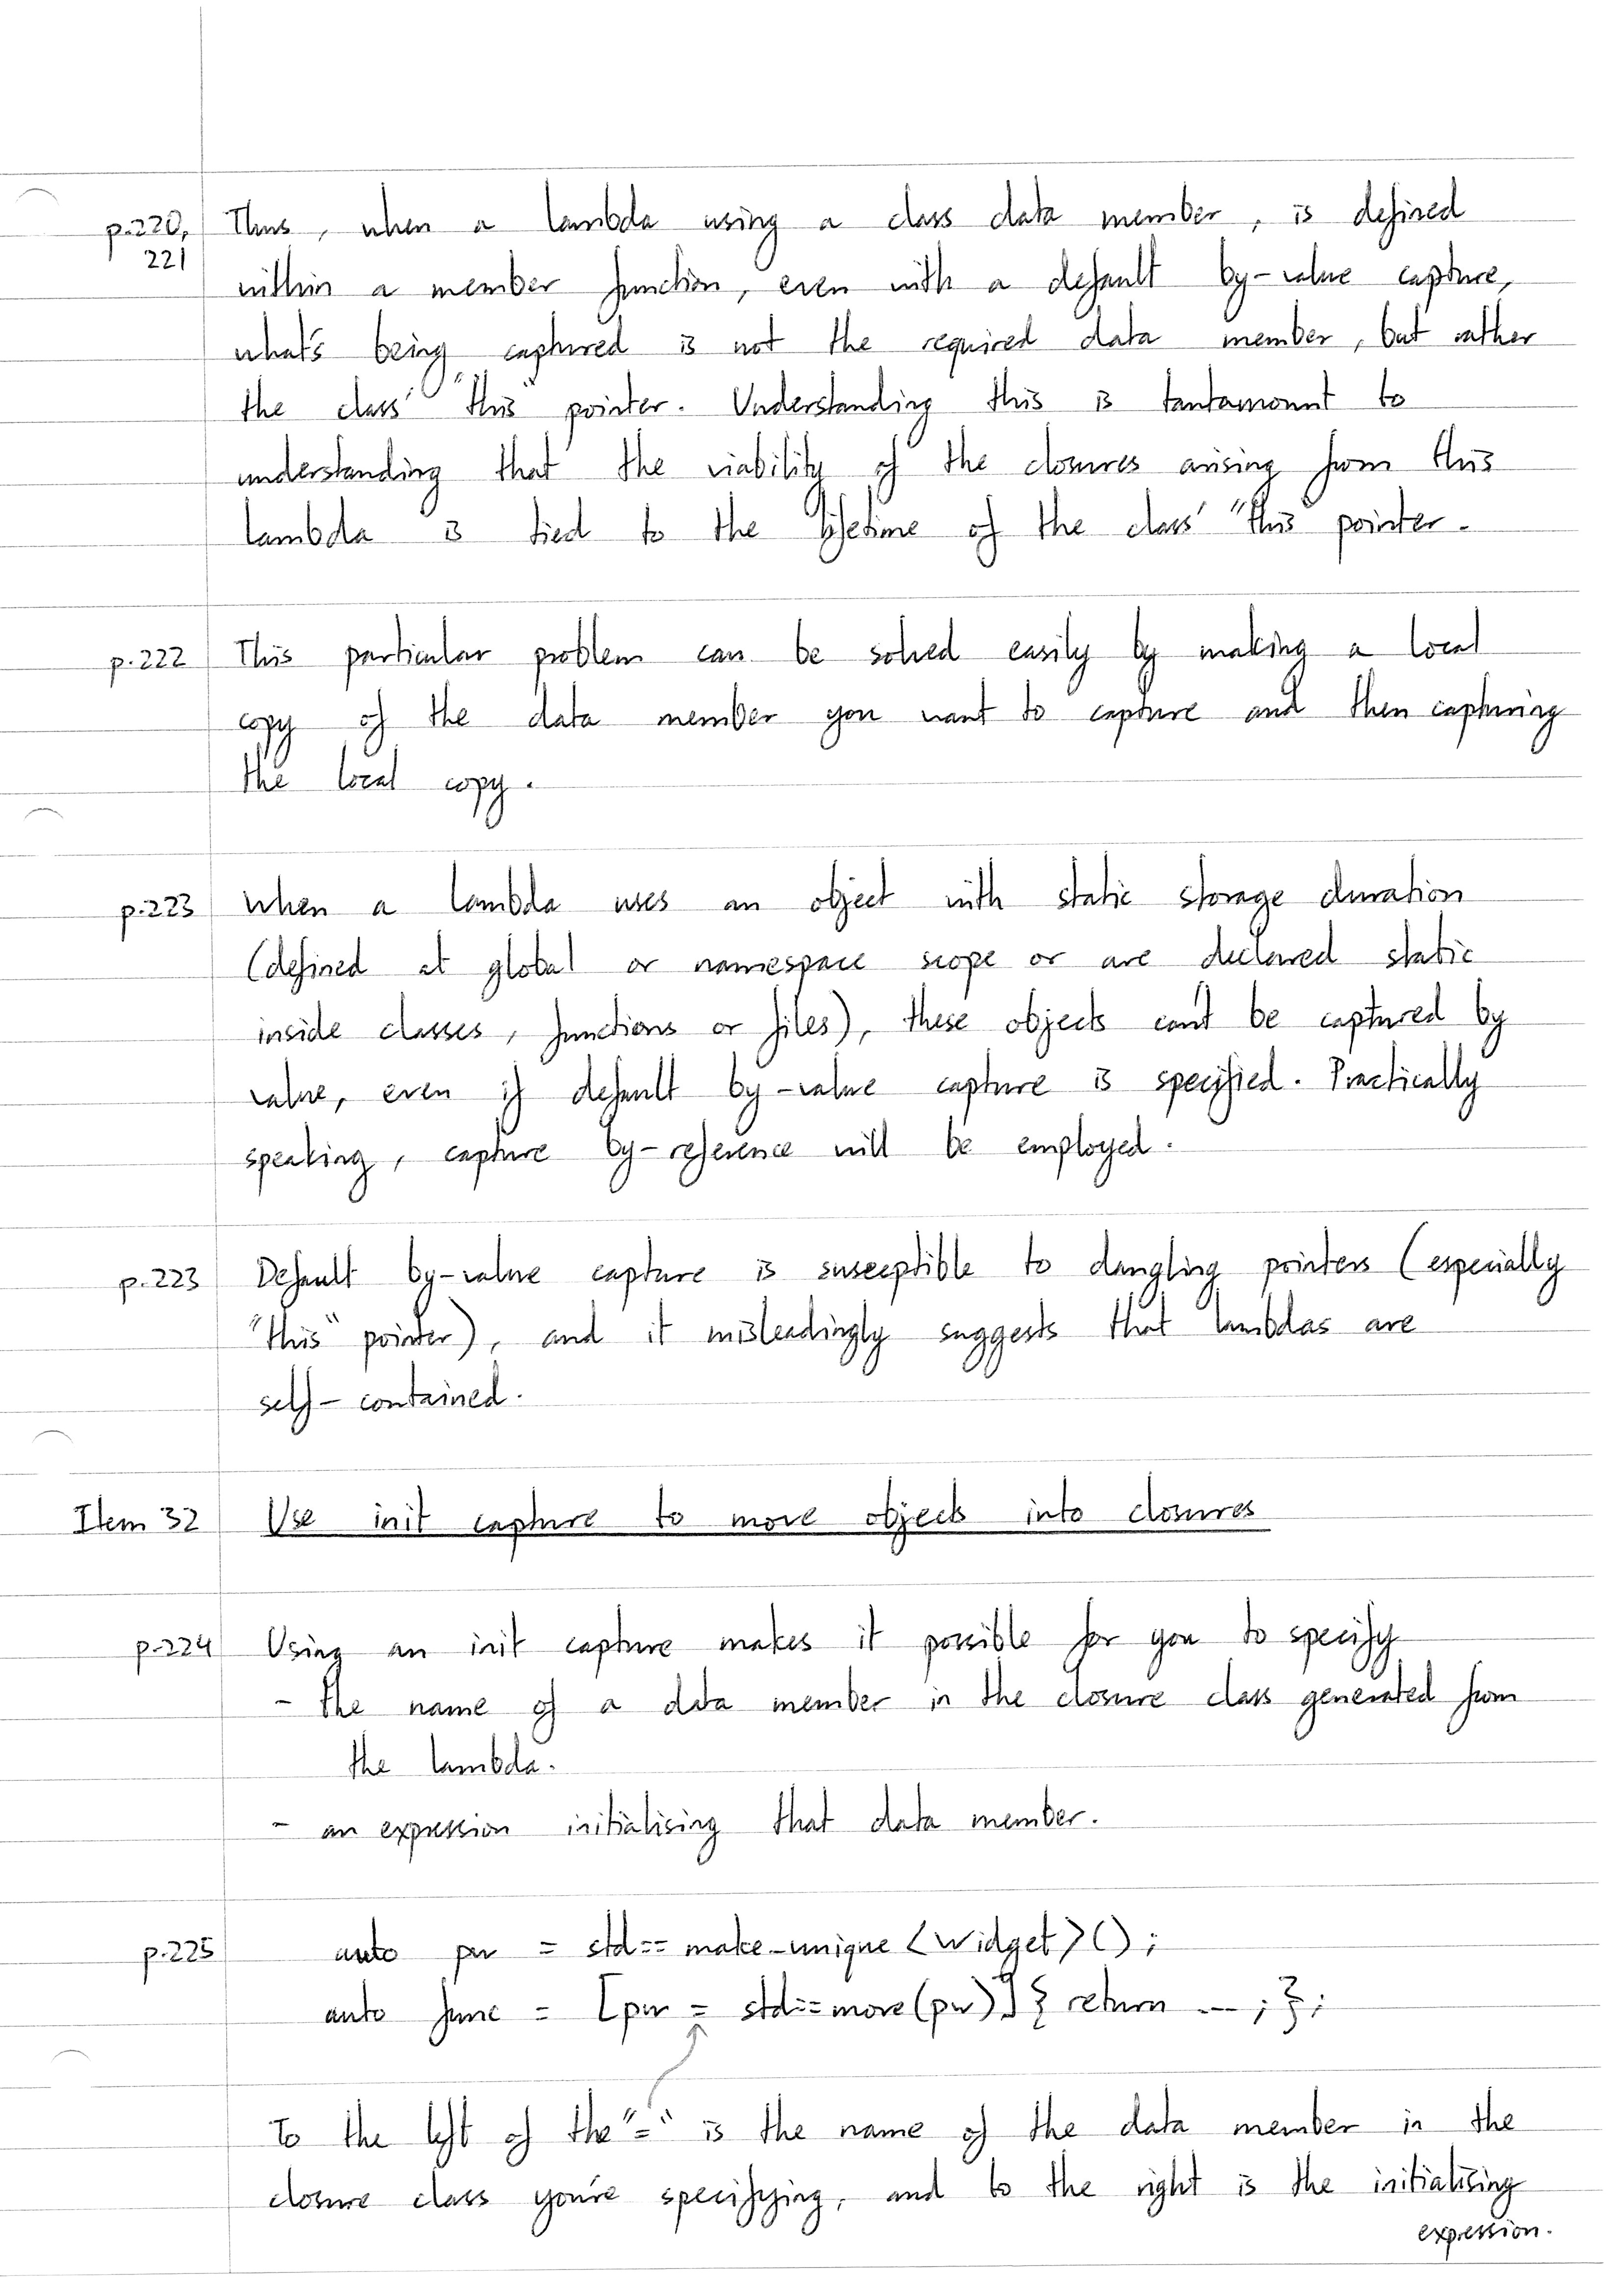 p.220, Thus, when a lambda using a class data member, is defined
221
within a member function, even with a default by-value capture,
what's being captured is not the required data member, but rather
the class' "this" pointer. Understanding this is tantamount to
understanding that the viability of the closures arising from this
lambda is tied to the lifetime of the class' "this" pointer.
p.222 This particular problem can be solved easily by making a local
copy of the data member you want to capture and then capturing
the local copy.
p.223 When a lambda uses an object with static storage duration
(defined at global or namespace scope or are declared static
inside classes, functions or files), these objects can't be captured by
value, even if default by-value capture is specified. Practically
speaking, capture by-reference will be employed.
p.223 Default by-value capture is susceptible to dangling pointers (especially
"this" pointer), and it misleadingly suggests that lambdas are
self-contained.
Item 32 Use init capture to move objects into closures
p.224 Using an init capture makes it possible for you to specify
- the name of a data member in the closure class generated from
the lambda.
- an expression initialising that data member.
p.225 auto pw = std::make_unique<Widget>();
auto func = [pw = std::move(pw)] { return ---; };
To the left of the "=" is the name of the data member in the
closure class you're specifying, and to the right is the initialising
expression.